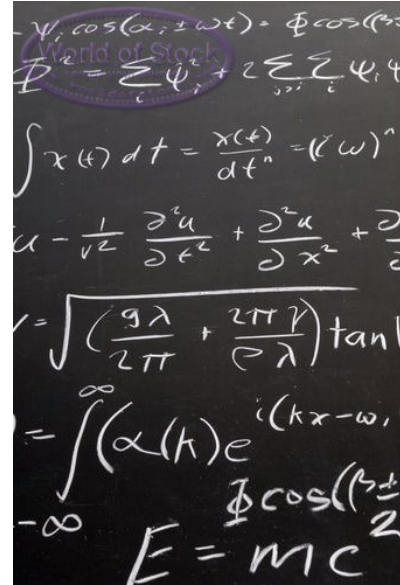 ψᵢ cos(αᵢ ± ωt) = Φ cos((β±
World of Stock
Φ² = Σᵢ ψᵢ² + 2 Σ_{j>i} Σᵢ ψᵢ ψ
∫ x(t) dt = x(t)/dtⁿ = (i ω)ⁿ
u - 1/v² ∂²u/∂t² + ∂²u/∂x² + ∂
= √((gλ/2π + 2πγ/ρλ) tan
= ∫_{-∞}^{∞} (α(k) e^{i(kx-ω,
Φ cos((β±
E = mc²